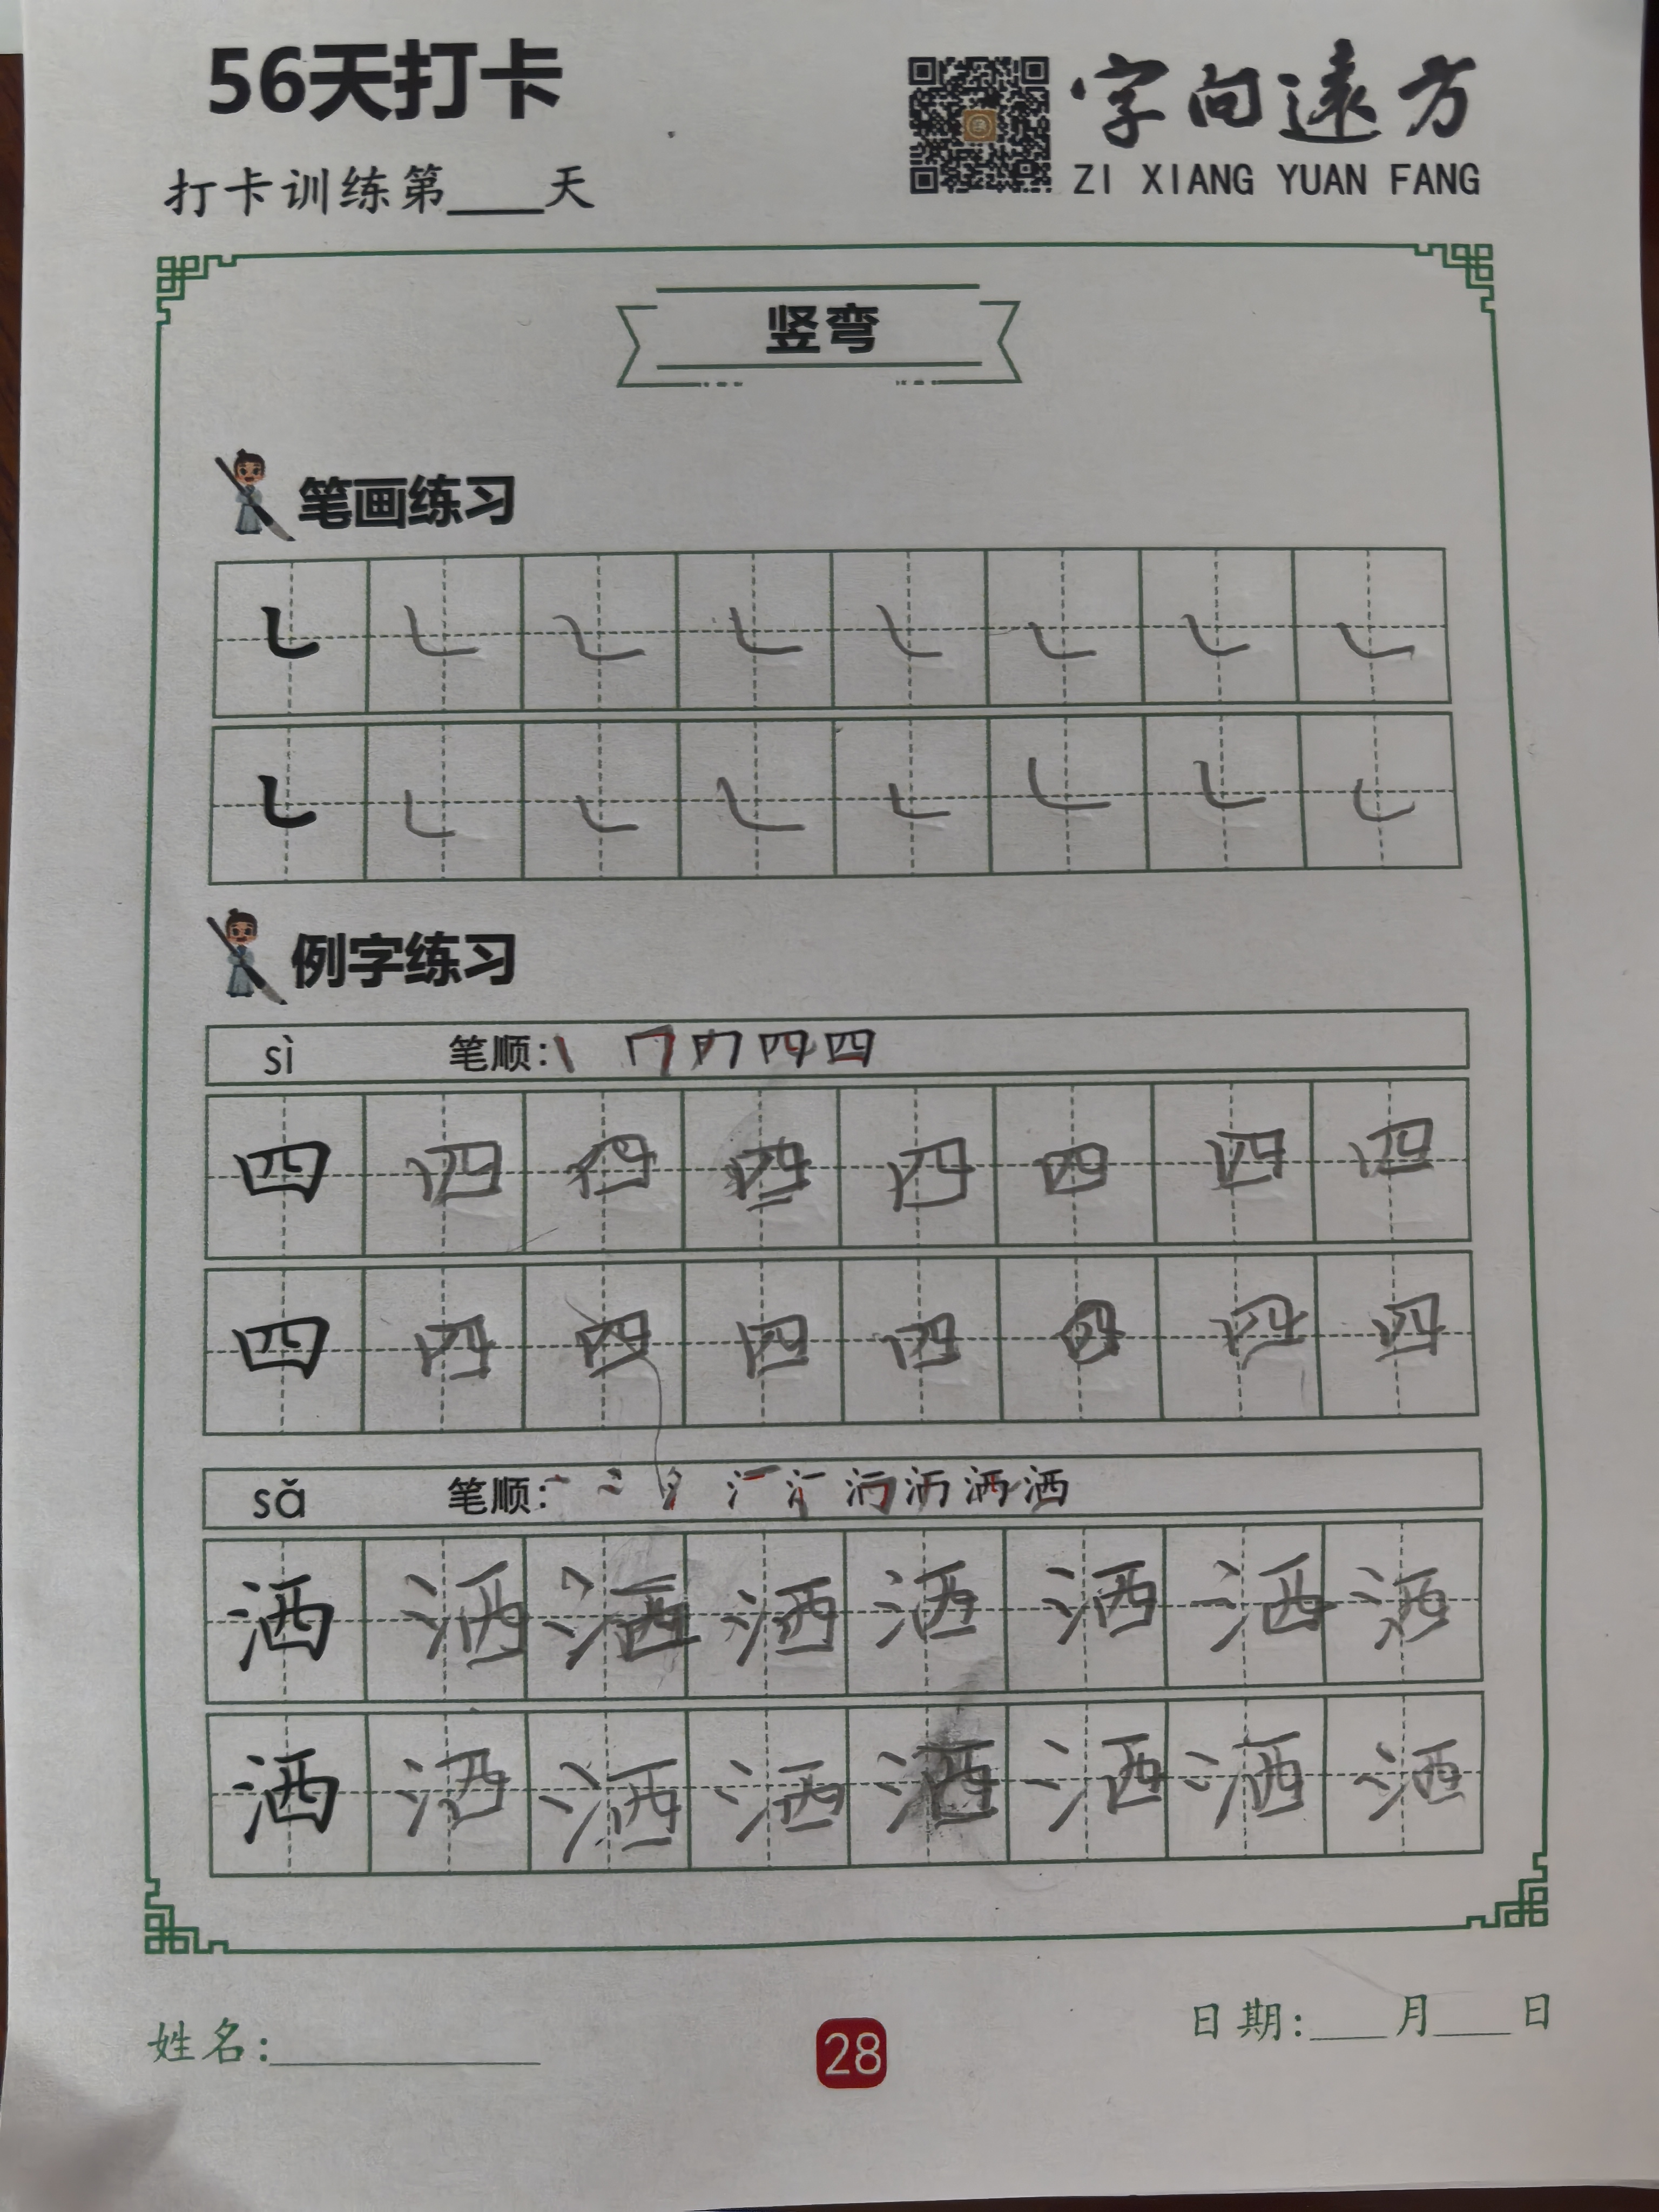 56天打卡
字向遠方
打卡训练第____天
ZI XIANG YUAN FANG
竖弯
笔画练习
㇄ ㇄ ㇄ ㇄ ㇄ ㇄ ㇄ ㇄
㇄ ㇄ ㇄ ㇄ ㇄ ㇄ ㇄ ㇄
例字练习
sì 笔顺: 四
四 四 四 四 四 四 四 四
四 四 四 四 四 四 四 四
sǎ 笔顺: 洒
洒 洒 洒 洒 洒 洒 洒 洒
洒 洒 洒 洒 洒 洒 洒 洒
姓名:__________ 28 日期:___月___日